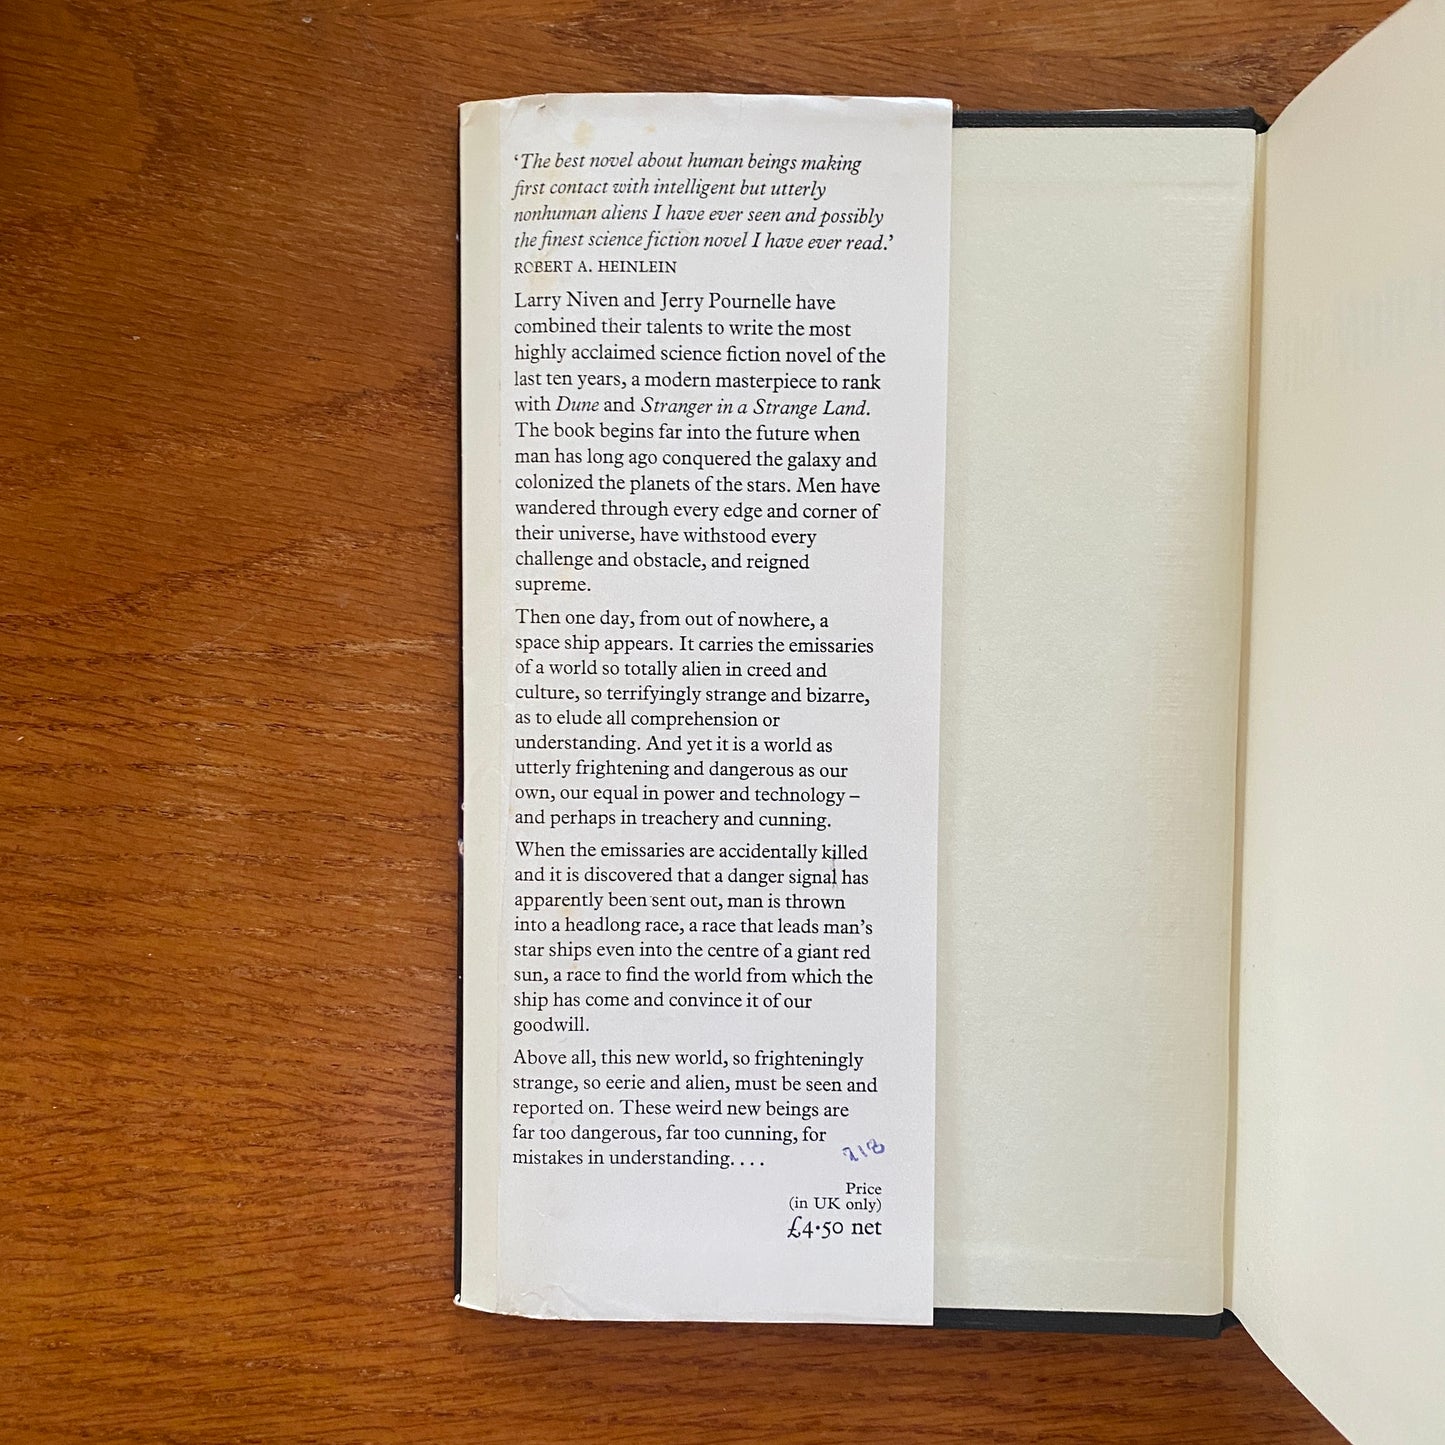 ‘The best novel about human beings making
first contact with intelligent but utterly
nonhuman aliens I have ever seen and possibly
the finest science fiction novel I have ever read.’
ROBERT A. HEINLEIN
Larry Niven and Jerry Pournelle have
combined their talents to write the most
highly acclaimed science fiction novel of the
last ten years, a modern masterpiece to rank
with Dune and Stranger in a Strange Land.
The book begins far into the future when
man has long ago conquered the galaxy and
colonized the planets of the stars. Men have
wandered through every edge and corner of
their universe, have withstood every
challenge and obstacle, and reigned
supreme.
Then one day, from out of nowhere, a
space ship appears. It carries the emissaries
of a world so totally alien in creed and
culture, so terrifyingly strange and bizarre,
as to elude all comprehension or
understanding. And yet it is a world as
utterly frightening and dangerous as our
own, our equal in power and technology –
and perhaps in treachery and cunning.
When the emissaries are accidentally killed
and it is discovered that a danger signal has
apparently been sent out, man is thrown
into a headlong race, a race that leads man’s
star ships even into the centre of a giant red
sun, a race to find the world from which the
ship has come and convince it of our
goodwill.
Above all, this new world, so frighteningly
strange, so eerie and alien, must be seen and
reported on. These weird new beings are
far too dangerous, far too cunning, for
mistakes in understanding. . . .
218
Price
(in UK only)
£4·50 net